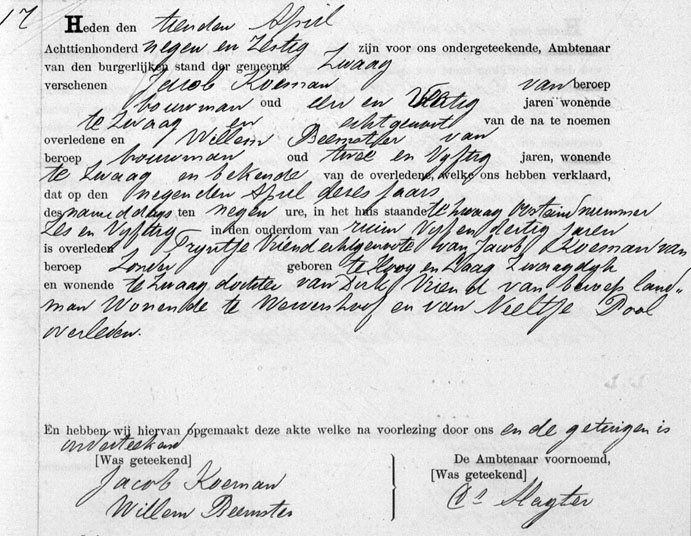 17 Heden den tienden April
Achttienhonderd negen en Zestig zijn voor ons ondergeteekende, Ambtenaar
van den burgerlijken stand der gemeente Zwaag
verschenen Jacob Koeman van beroep
bouwman oud en Veertig jaren wonende
te Zwaag en echtgenoot van de na te noemen
overledene en Willem Beemster van
beroep bouwman oud twee en Vyftig jaren, wonende
te Zwaag en bekende van de overledene, welke ons hebben verklaard,
dat op den negenden April dezes jaars
des namiddags ten negen ure, in het huis staande te Zwaag nummer
Zes en Vyftig in den ouderdom van ruim Vyf en dertig jaren
is overleden Tryntje Vriend echtgenoote van Jacob Koeman van
beroep Zonder geboren te Hoog en Laag Zwaagdyk
en wonende te Zwaag dochter van Dirk Vriend van beroep land„
man Wonende te Wervershoof en van Neeltje Dool
overleden.
En hebben wij hiervan opgemaakt deze akte welke na voorlezing door ons en de getuigen is
onderteekend
[Was geteekend] De Ambtenaar voornoemd,
Jacob Koeman [Was geteekend]
Willem Beemster Slagter